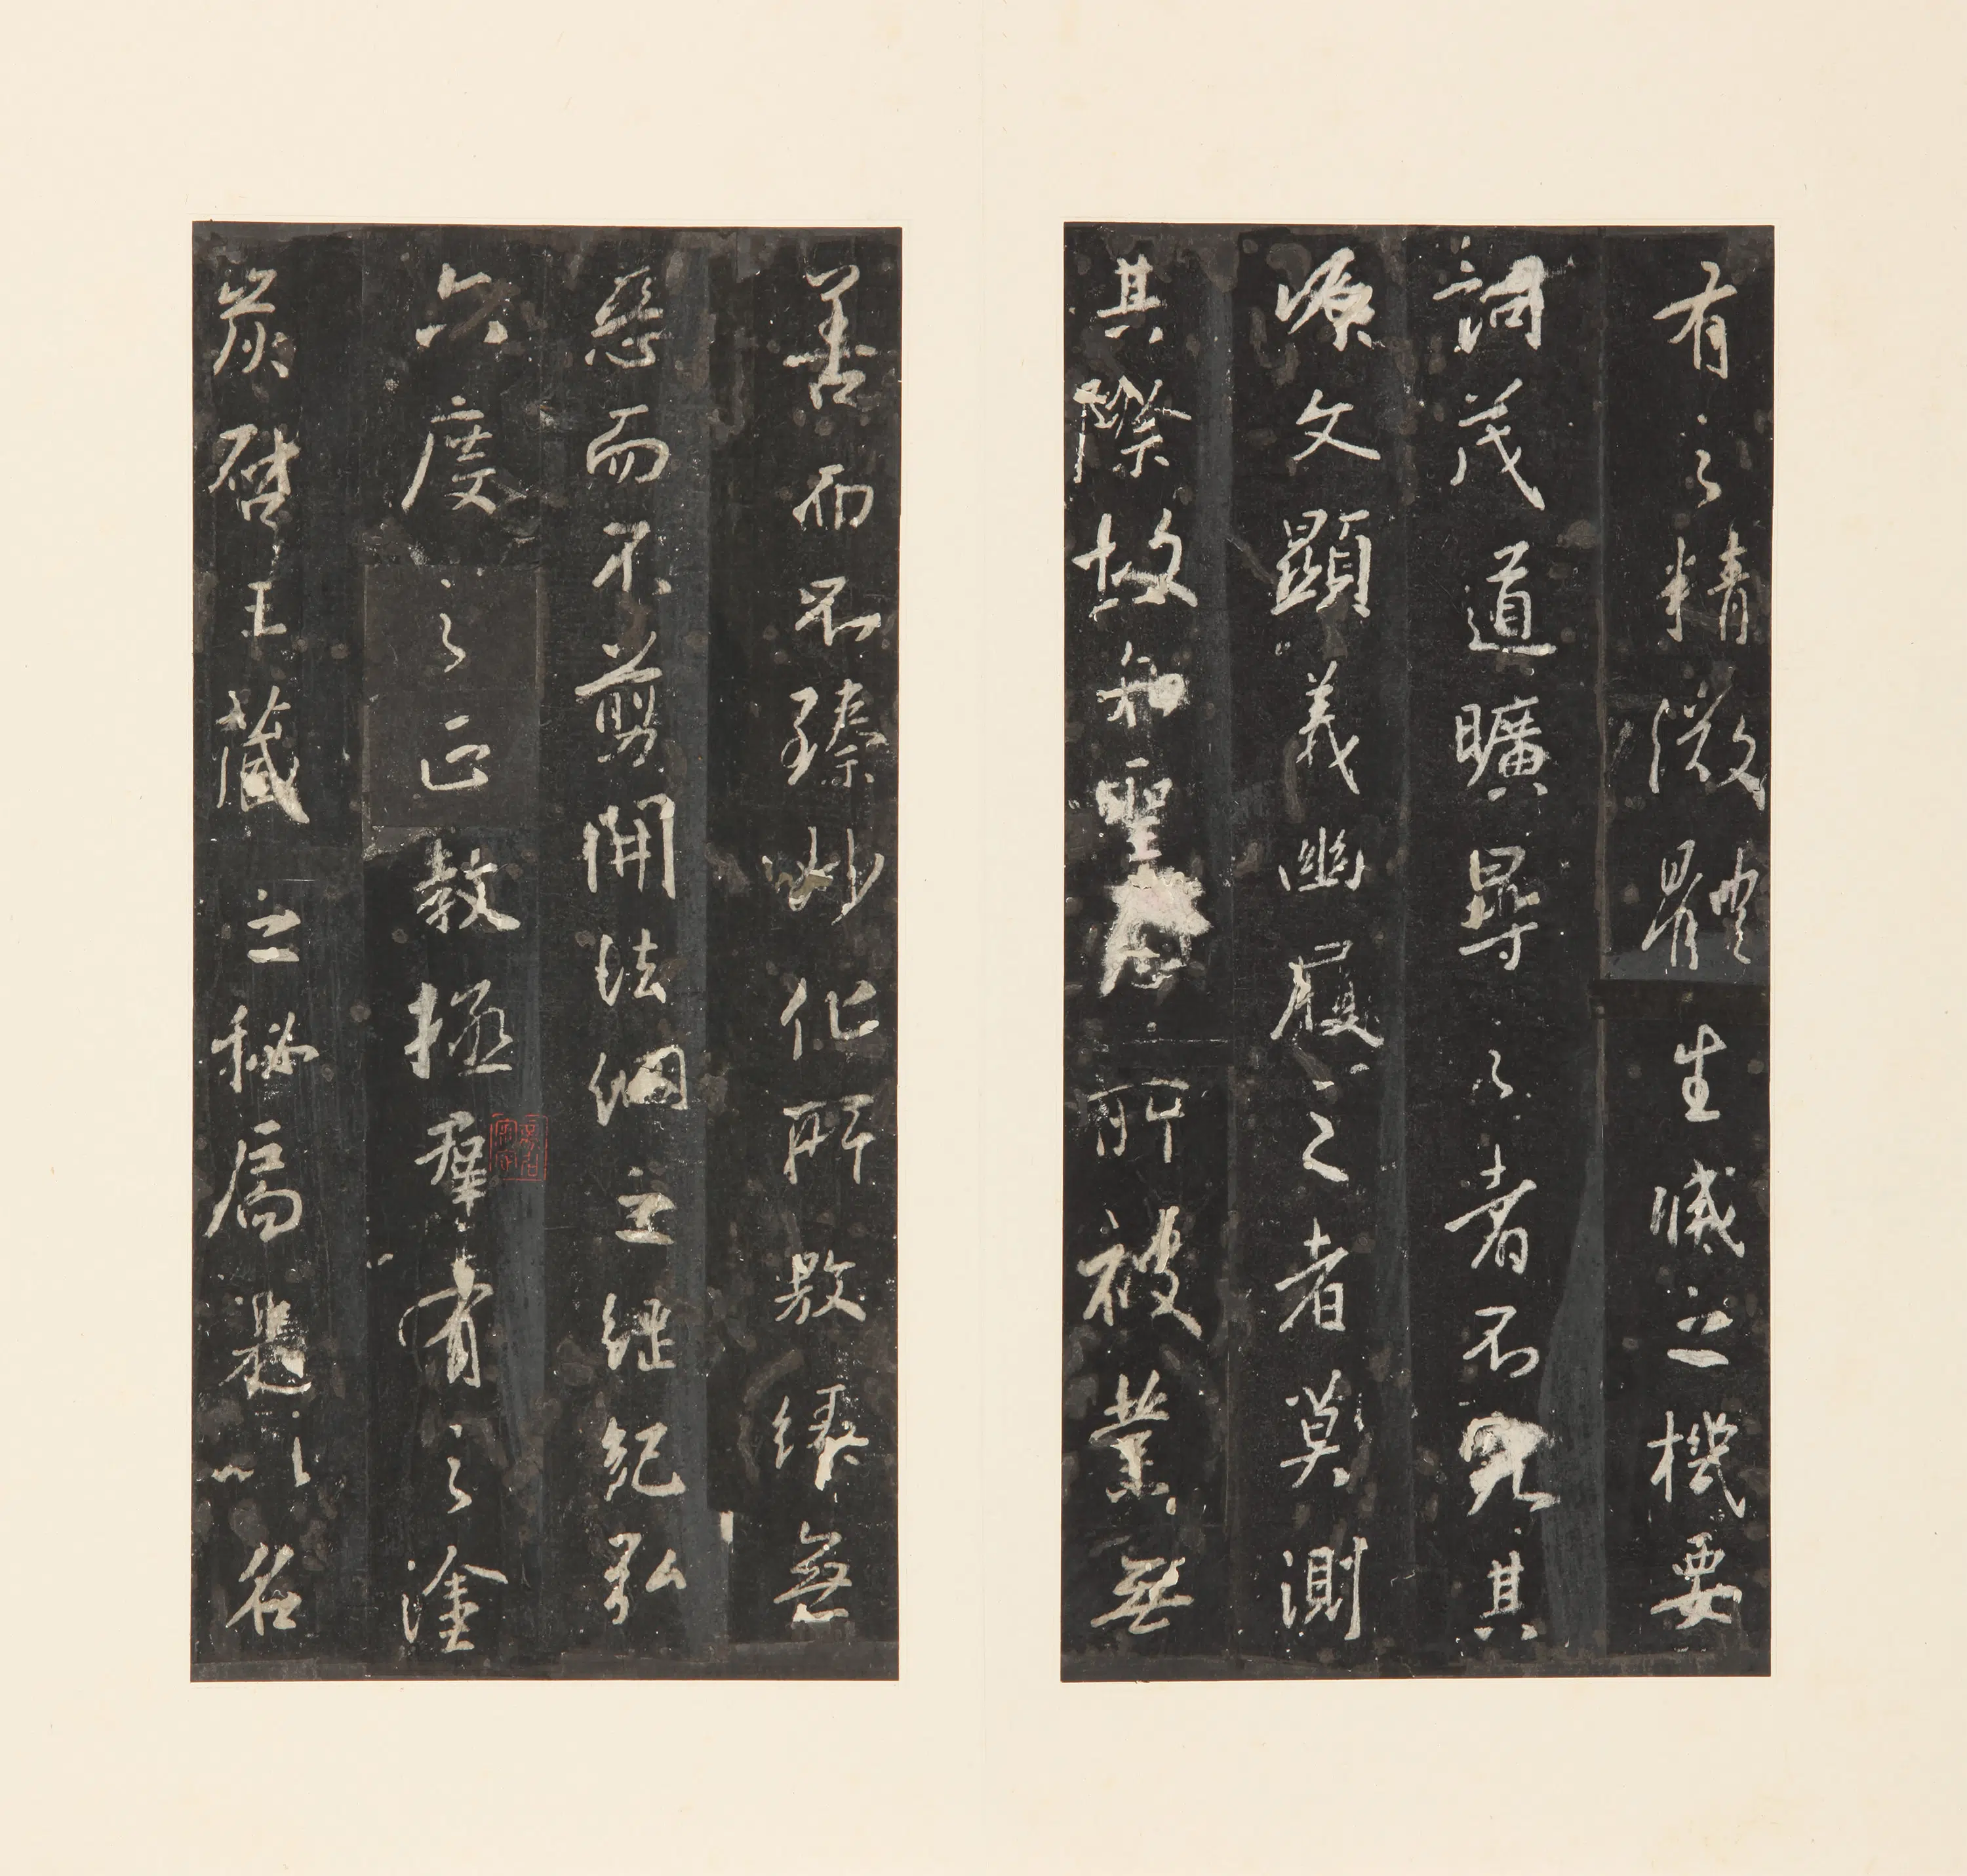 有之精微體生滅之機要
詞茂道曠尋之者不究其
源文顯義幽履之者莫測
其際故知聖慈所被業無
善而不臻妙化所敷緣無
惡而不剪開法網之綱紀弘
六度之正教拯羣有之塗
炭啓三藏之秘扃是以名